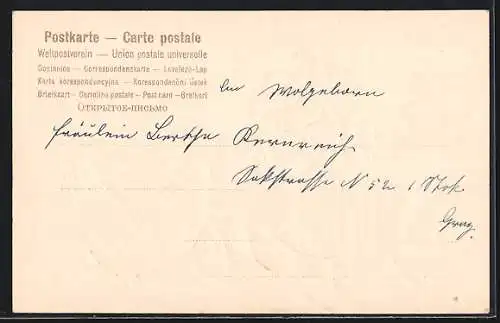 Postkarte — Carte postale
Weltpostverein — Union postale universelle
Dopisnice — Correspondenzkarte — Levelező-Lap
Karta korespondencyjna — Korespondenční lístek
Briefkaart — Cartolina postale — Post card — Brefkort
Открытое-письмо
Wolgeborn
Fräulein Bertha Kernreich
N 52 1 Stok
Graz